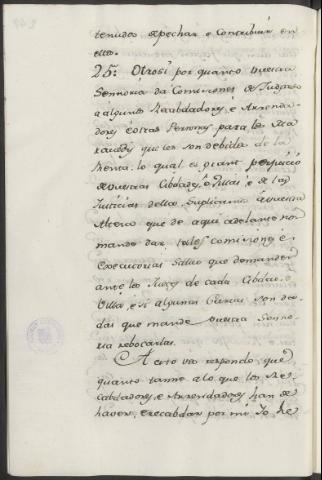 tenudos de pechar e contribuir en
ello.
25: Otrosi por quanto vuestra
Señoria da Comisiones de Judgado
a algunos Recabdadores e Arrenda-
dores e otras Personas para los Ma-
ravedis que les son debidos de la
Renta. lo qual es grant perjuicio
de vuestras Cibdades, e Villas, e de las
Justicias dellas. Suplicamos a vuestra
Alteza que de aqui adelante non
mande dar tales comisiones e
Executorias salvo que demanden
ante los Jueces de cada Cibdad o
Villa, e si algunas Cartas son da-
das que mande vuestra Seño-
ria rebocarlas.
A esto vos respondo que
quanto tanne a lo que los Re-
cabdadores, e Arrendadores han de
haver, e recabdar por mi Yo he